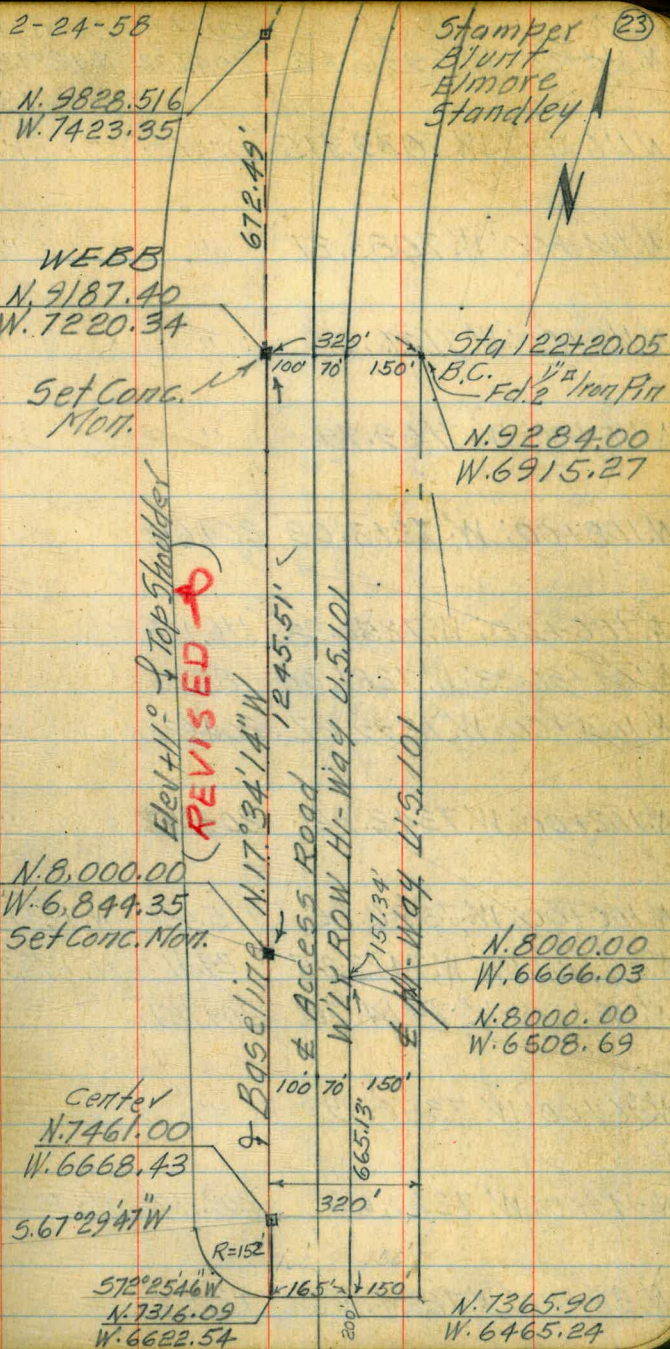 2-24-58
Stamper
Blunt
Elmore
Standley
23
N. 9828.516
W. 7423.35
672.49'
N
WEBB
N. 9187.40
W. 7220.34
320'
Sta 122+20.05
100' 70' 150'
B.C.
Fd. 2 1"□ Iron Pin
Set Conc.
Mon.
N. 9284.00
W. 6915.27
Elev +11.0 & Top Shoulder
(REVISED)
1245.51'
& Baseline N.17°34'14"W
℄ Access Road
WLY ROW Hi-Way U.S. 101
℄ Hi-Way U.S. 101
N. 8,000.00
W. 6,844.35
Set Conc. Mon.
157.34'
N. 8000.00
W. 6666.03
N. 8000.00
W. 6508.69
100' 70' 150'
Center
N. 7461.00
W. 6668.43
665.13'
320'
S. 67°29'47"W
R=152'
S72°25'46"W
165' 150'
N. 7316.09
W. 6622.54
200'
N. 7365.90
W. 6465.24